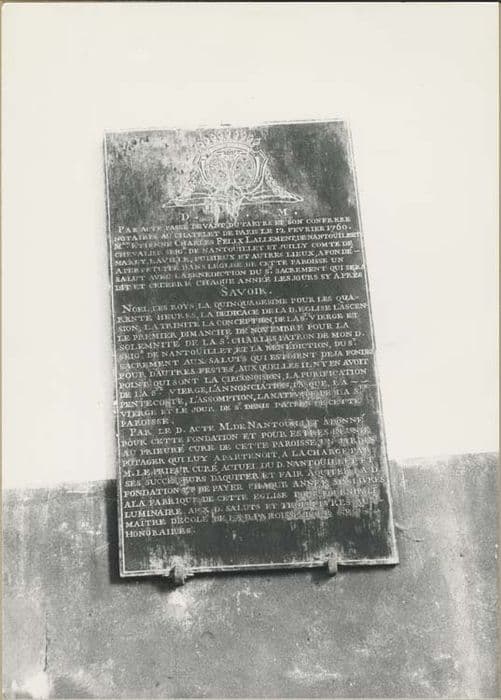 D. M.
PAR ACTE PASSÉ DEVANT DUTARTRE ET SON CONFRERE
NOTAIRES AU CHATELET DE PARIS LE 12 FEVRIER 1760.
MRE ETIENNE CHARLES FELIX LALLEMENT, DE NANTOUILLET
CHEVALIER SEIGR DE NANTOUILLET ET JUILLY COMTE DE
MARLY LAVILLE, PUISIEUX ET AUTRES LIEUX, A FONDÉ
A PERPETUITÉ DANS L'EGLISE DE CETTE PAROISSE UN
SALUT AVEC LA BENEDICTION DU ST SACREMENT QUI SERA
DIT ET CELEBRÉ CHAQUE ANNÉE LES JOURS CY APRÉS
SAVOIR.
NOEL, LES ROYS, LA QUINQUAGESIME POUR LES QUA-
RENTE HEURES, LA DEDICACE DE LA D. EGLISE L'ASCEN-
SION, LA TRINITÉ LA CONCEPTION, DE LA STE VIERGE ET
LE PREMIER, DIMANCHE, DE NOVEMBRE POUR LA
SOLEMNITÉ DE LA ST CHARLES PATRON DE MON D.
SEIGR DE NANTOUILLET ET LA BENEDICTION, DU ST
SACREMENT AUX SALUTS QUI ESTOIENT DEJA FONDÉS
POUR D'AUTRES FESTES, AUX QUELLES IL N'Y EN AVOIT
POINT QUI SONT LA CIRCONCISION, LA PURIFICATION
DE LA STE VIERGE, L'ANNONCIATION, PAQUE, LA
PENTECOSTE, L'ASSOMPTION, LA NATIVITÉ DE LA STE
VIERGE ET LE JOUR DE ST DENIS PATRON DE CETTE
PAROISSE.
PAR LE D. ACTE M. DE NANTOUILLET A DONNÉ
POUR CETTE FONDATION ET POUR ESTRE
AU PRIEURÉ CURE DE CETTE PAROISSE, UN JARDIN
POTAGER QUI LUY APARTENOIT, A LA CHARGE PAR
M. LE PRIEUR CURÉ ACTUEL DU D. NANTOUILLET ET
SES SUCCESSEURS D'AQUITER ET FAIR AQUITER LA D.
FONDATION ET DE PAYER CHAQUE ANNÉE SIX LIVRES
A LA FABRIQUE DE CETTE EGLISE POUR FOURNIR LE
LUMINAIRE AUX D. SALUTS ET TROIS LIVRES AU
MAITRE D'ECOLE DE LA D. PAROISSE POUR SES
HONORAIRES.